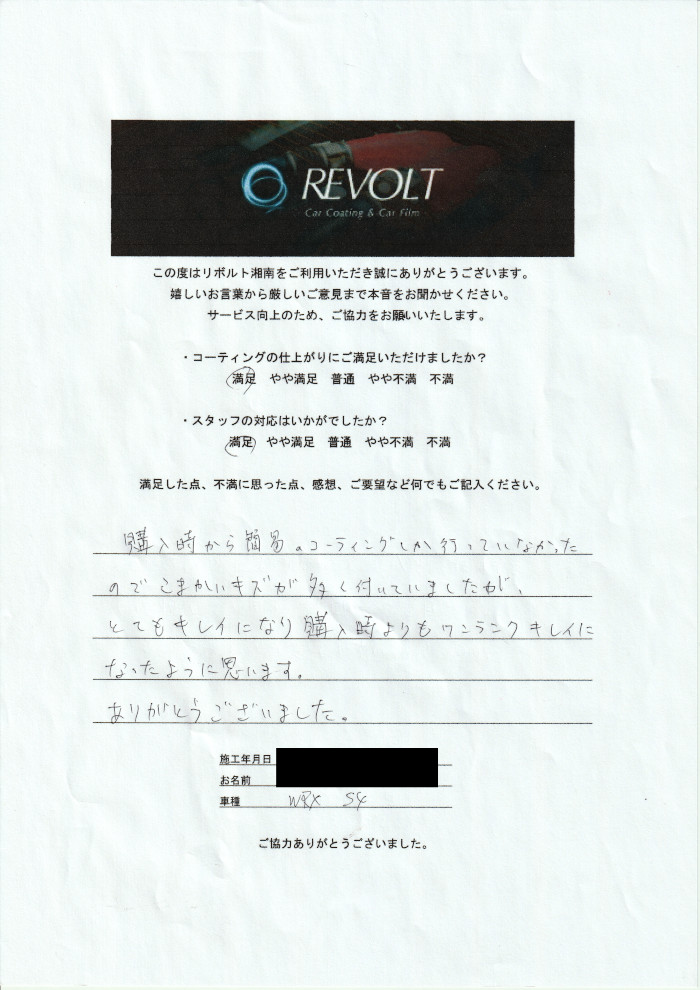 REVOLT
Car Coating & Car Film
この度はリボルト湘南をご利用いただき誠にありがとうございます。
嬉しいお言葉から厳しいご意見まで本音をお聞かせください。
サービス向上のため、ご協力をお願いいたします。
・コーティングの仕上がりにご満足いただけましたか？
満足 やや満足 普通 やや不満 不満
・スタッフの対応はいかがでしたか？
満足 やや満足 普通 やや不満 不満
満足した点、不満に思った点、感想、ご要望など何でもご記入ください。
購入時から簡易のコーティングしか行っていなかった
のでこまかいキズが多く付いていましたが、
とてもキレイになり購入時よりもワンランクキレイに
なったように思います。
ありがとうございました。
施工年月日
お名前
車種 WRX S4
ご協力ありがとうございました。